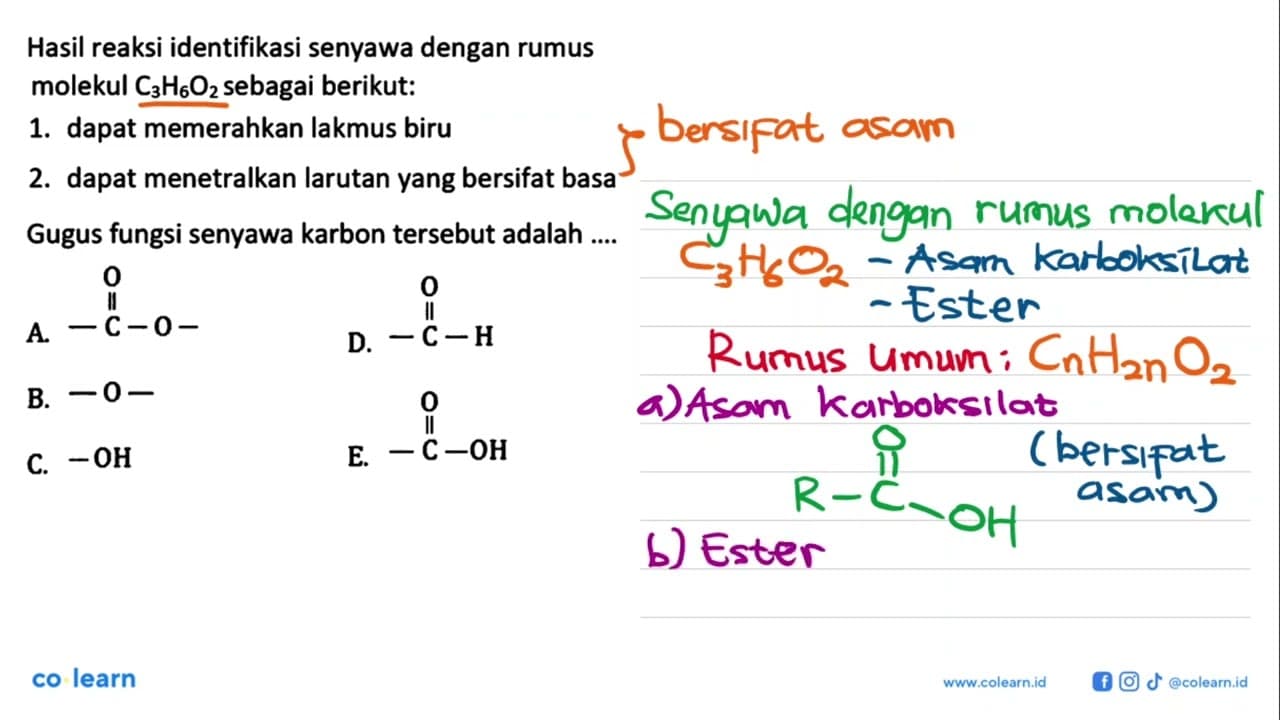 Hasil reaksi identifikasi senyawa dengan rumus
molekul C₃H₆O₂ sebagai berikut:
1. dapat memerahkan lakmus biru
2. dapat menetralkan larutan yang bersifat basa
Gugus fungsi senyawa karbon tersebut adalah ....
O
||
A. — C — O —
B. — O —
C. — OH
O
||
D. — C — H
O
||
E. — C — OH
} bersifat asam
Senyawa dengan rumus molekul
C₃H₆O₂ – Asam Karboksilat
– Ester
Rumus umum : CnH2nO2
a) Asam karboksilat
O
||
R – C – OH
(bersifat
asam)
b) Ester
co learn
www.colearn.id
@colearn.id